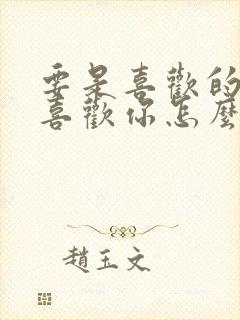 要是喜歡的
喜歡你怎麼
趙玉文